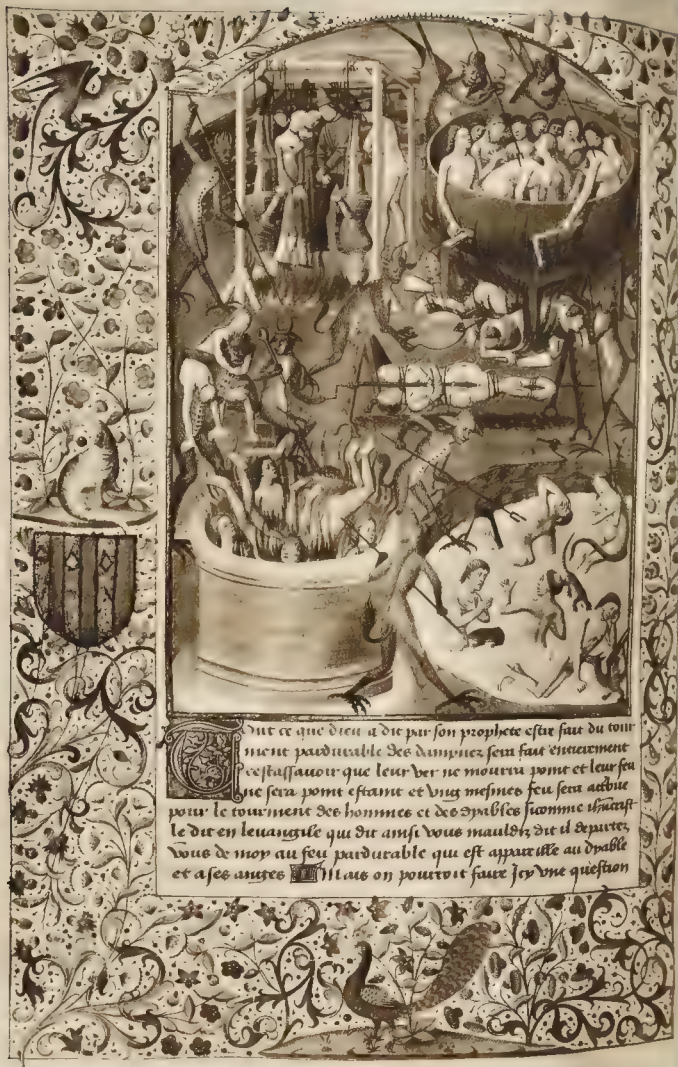 Tout ce que dieu a dit par son prophete estre fait du tour
ment pardurable des dampnez sera fait entierement
cestassauoir que leur ver ne mourra point et leur feu
ne sera point estaint et vng mesmes feu sera
pour le tourment des hommes et des dyables sicomme
le dit en leuangile qui dit ainsi vous mauldiz dit il departez
vous de moy au feu pardurable qui est appareille au dyable
et a ses anges Mais on pourroit faire Icy vne question